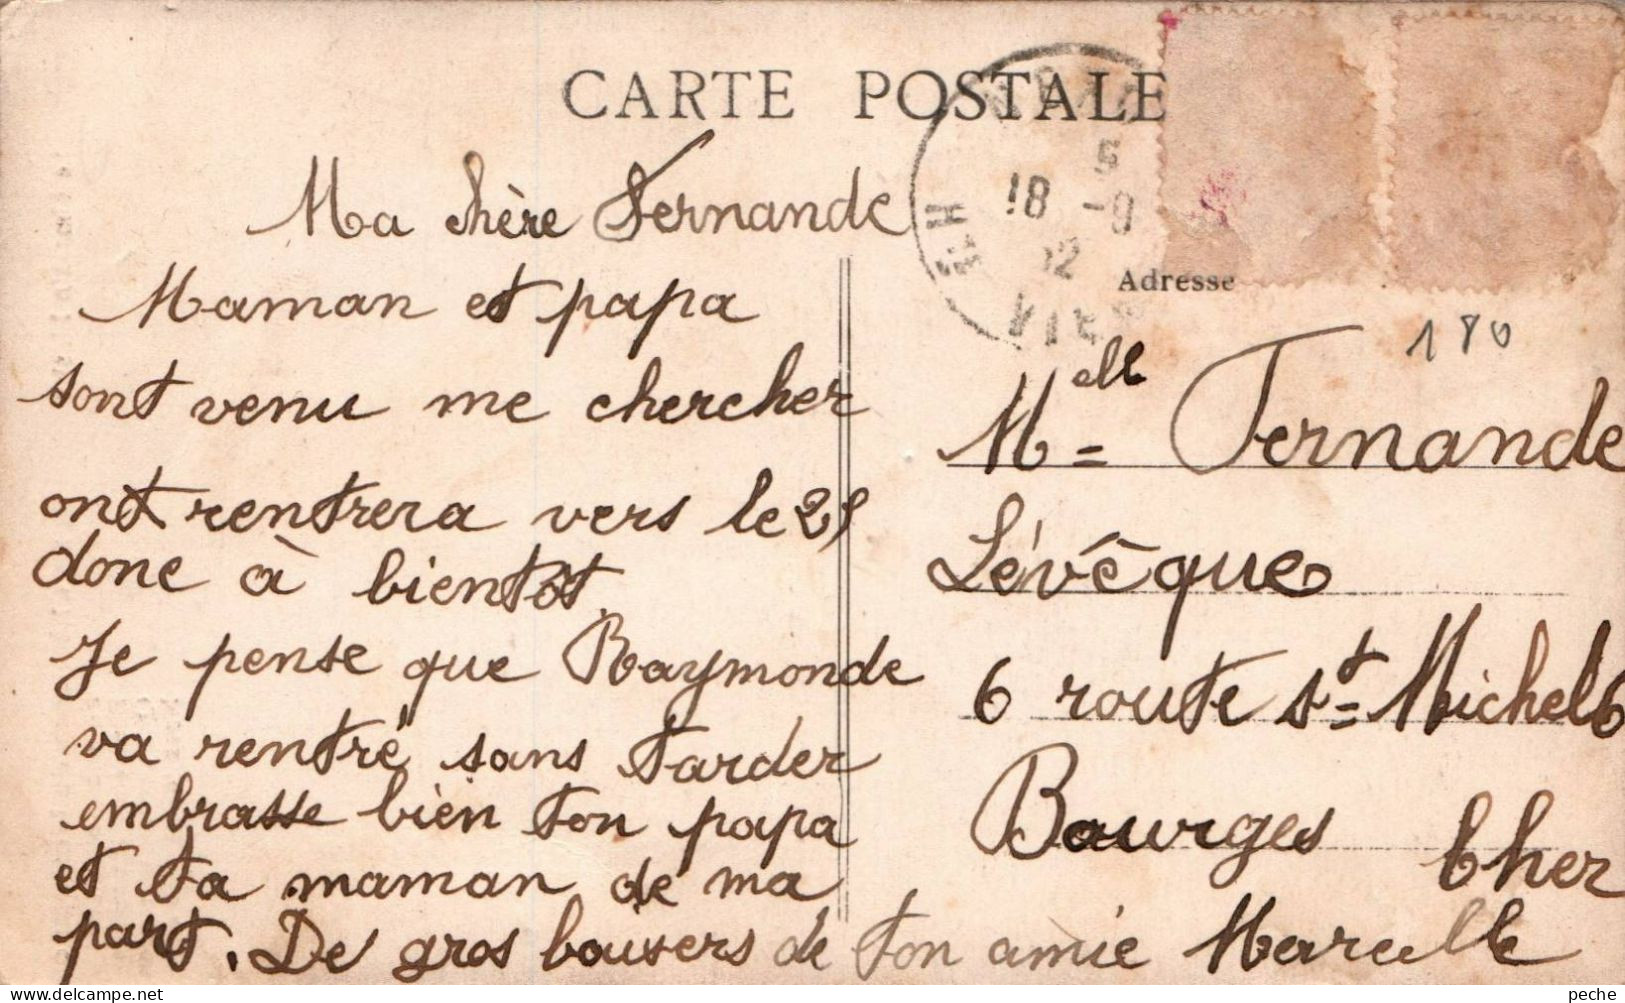 CARTE POSTALE
Ma chère Fernande
Maman et papa
sont venu me chercher
ont rentrera vers le 25
donc à bientôt
Je pense que Raymonde
va rentré sans tarder
embrasse bien ton papa
et ta maman de ma
part. De gros bousers de ton amie Marcelle
5
18 -9
Adresse
180
Melle = Fernande
Lévêque
6 route st = Michel 6
Bourges
Cher
peche